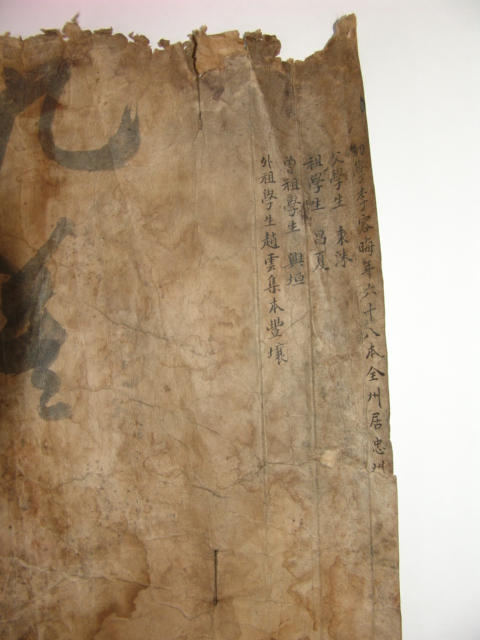 幼學李容晦年六十八本全州居忠州
父學生 東洙
祖學生 昌夏
曾祖學生 興垣
外祖學生趙雲集本豐壤